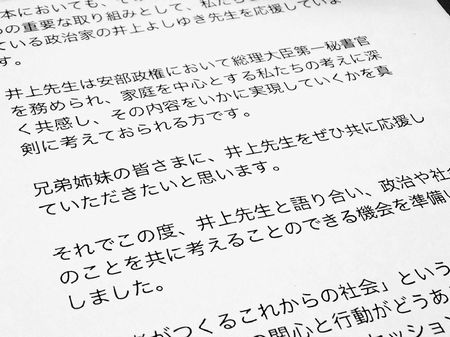 本においても、
つの重要な取り組みとして、私たち
ている政治家の井上よしゆき先生を応援していま
す。
井上先生は安部政権において総理大臣第一秘書官
を務められ、家庭を中心とする私たちの考えに深
く共感し、その内容をいかに実現していくかを真
剣に考えておられる方です。
兄弟姉妹の皆さまに、井上先生をぜひ共に応援し
ていただきたいと思います。
それでこの度、井上先生と語り合い、政治や社会
のことを共に考えることのできる機会を準備い
しました。
がつくるこれからの社会」という
の関心と行動がどうあ
セッション